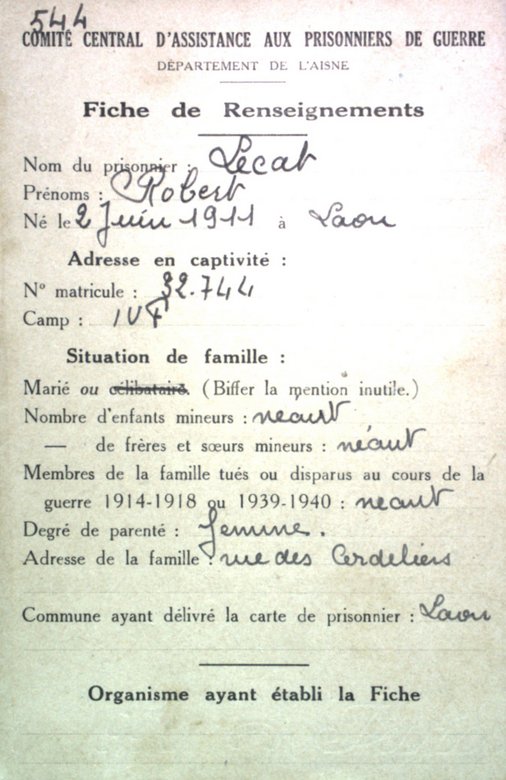 544
COMITÉ CENTRAL D'ASSISTANCE AUX PRISONNIERS DE GUERRE
DÉPARTEMENT DE L'AISNE
Fiche de Renseignements
Nom du prisonnier : Lecat
Prénoms : Robert
Né le 2 Juin 1911 à Laon
Adresse en captivité :
N° matricule : 32.744
Camp : IVF
Situation de famille :
Marié ou célibataire. (Biffer la mention inutile.)
Nombre d'enfants mineurs : neant
— de frères et sœurs mineurs : néant
Membres de la famille tués ou disparus au cours de la
guerre 1914-1918 ou 1939-1940 : neant
Degré de parenté : femme.
Adresse de la famille : rue des Cordeliers
Commune ayant délivré la carte de prisonnier : Laon
Organisme ayant établi la Fiche